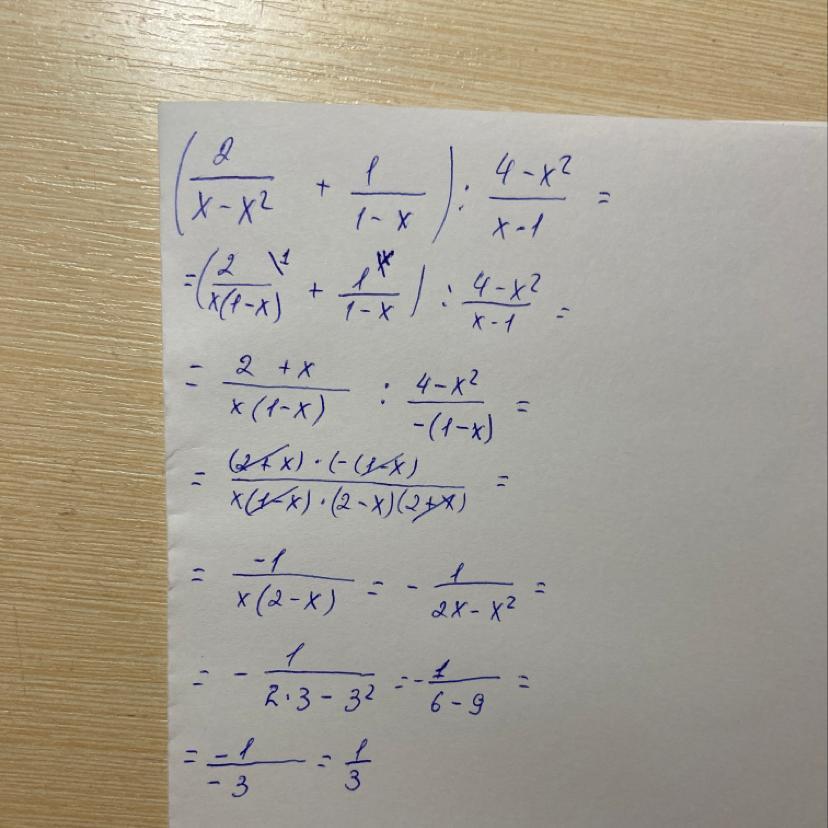 (2/(x-x²) + 1/(1-x)) : (4-x²)/(x-1) =
=(2\1/(x(1-x)) + 1\x/(1-x)) : (4-x²)/(x-1) =
= (2+x)/(x(1-x)) : (4-x²)/(-(1-x)) =
= ((2+x)·(-(1-x)))/(x(1-x)·(2-x)(2+x)) =
= -1/(x(2-x)) = - 1/(2x-x²) =
= - 1/(2·3-3²) = - 1/(6-9) =
= -1/-3 = 1/3